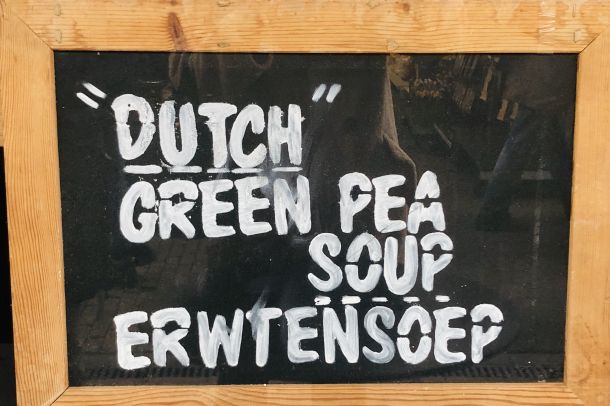 "DUTCH"
GREEN PEA
SOUP
ERWTENSOEP